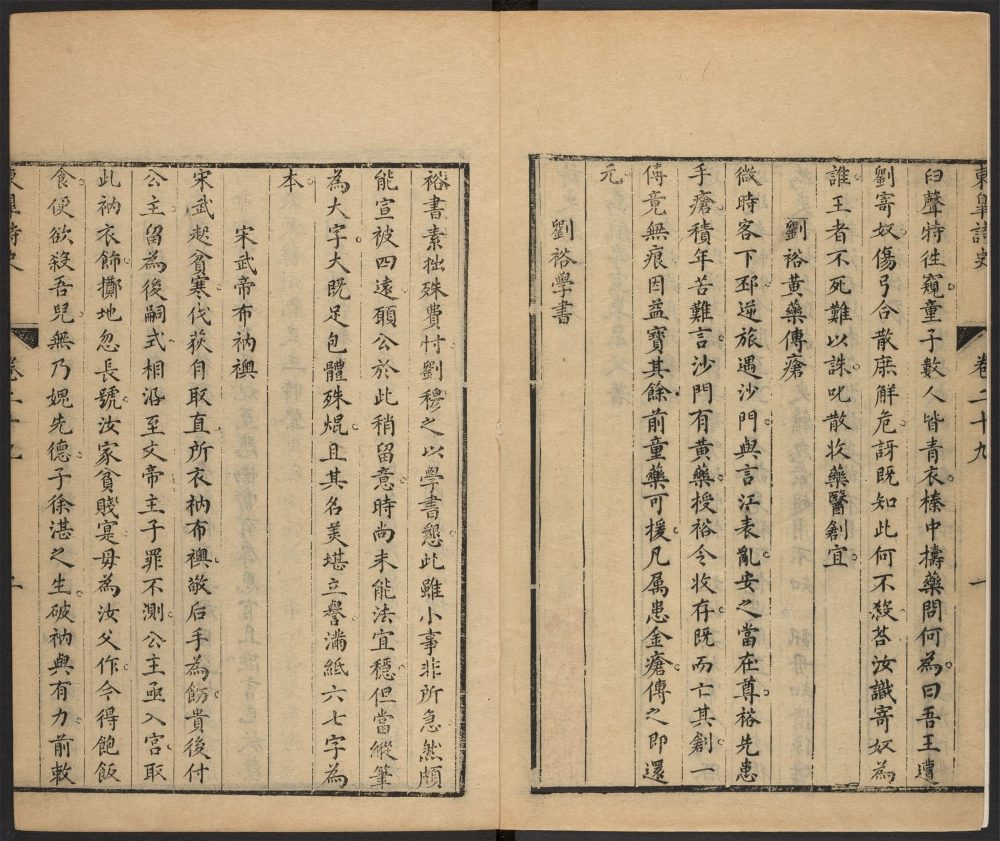 東皐詩史
卷二十九
一
臼聲特徃窺童子數人皆青衣榛中擣藥問何為曰吾王遭
劉寄奴傷弓合散庶解危訝既知此何不殺荅汝識寄奴為
誰王者不死難以誅叱散收藥醫創宜
劉裕黄藥傅瘡
微時客下邳逆旅遇沙門與言江表亂安之當在尊裕先患
手瘡積年苦難言沙門有黄藥授裕令收存既而亡其創一
傅竟無痕因益寶其餘前童藥可援凡属患金瘡傅之即還
元
劉裕學書
裕書素拙殊費忖劉穆之以學書懇此雖小事非所急然頗
能宣被四遠頋公於此稍留意時尚未能法宜穩但當縱筆
為大字大既足包體殊焜且其名美堪立譽滿紙六七字為
本
宋武帝布衲襖
宋武起貧寒伐荻自取直所衣衲布襖敬后手為飭貴後付
公主留為後嗣式相沿至文帝主子罪不測公主亟入宫取
此衲衣飾擲地忽長號汝家貧賤寔毋為汝父作今得飽飯
食便欲殺吾兒無乃媿先德子徐湛之生破衲與有力前敕